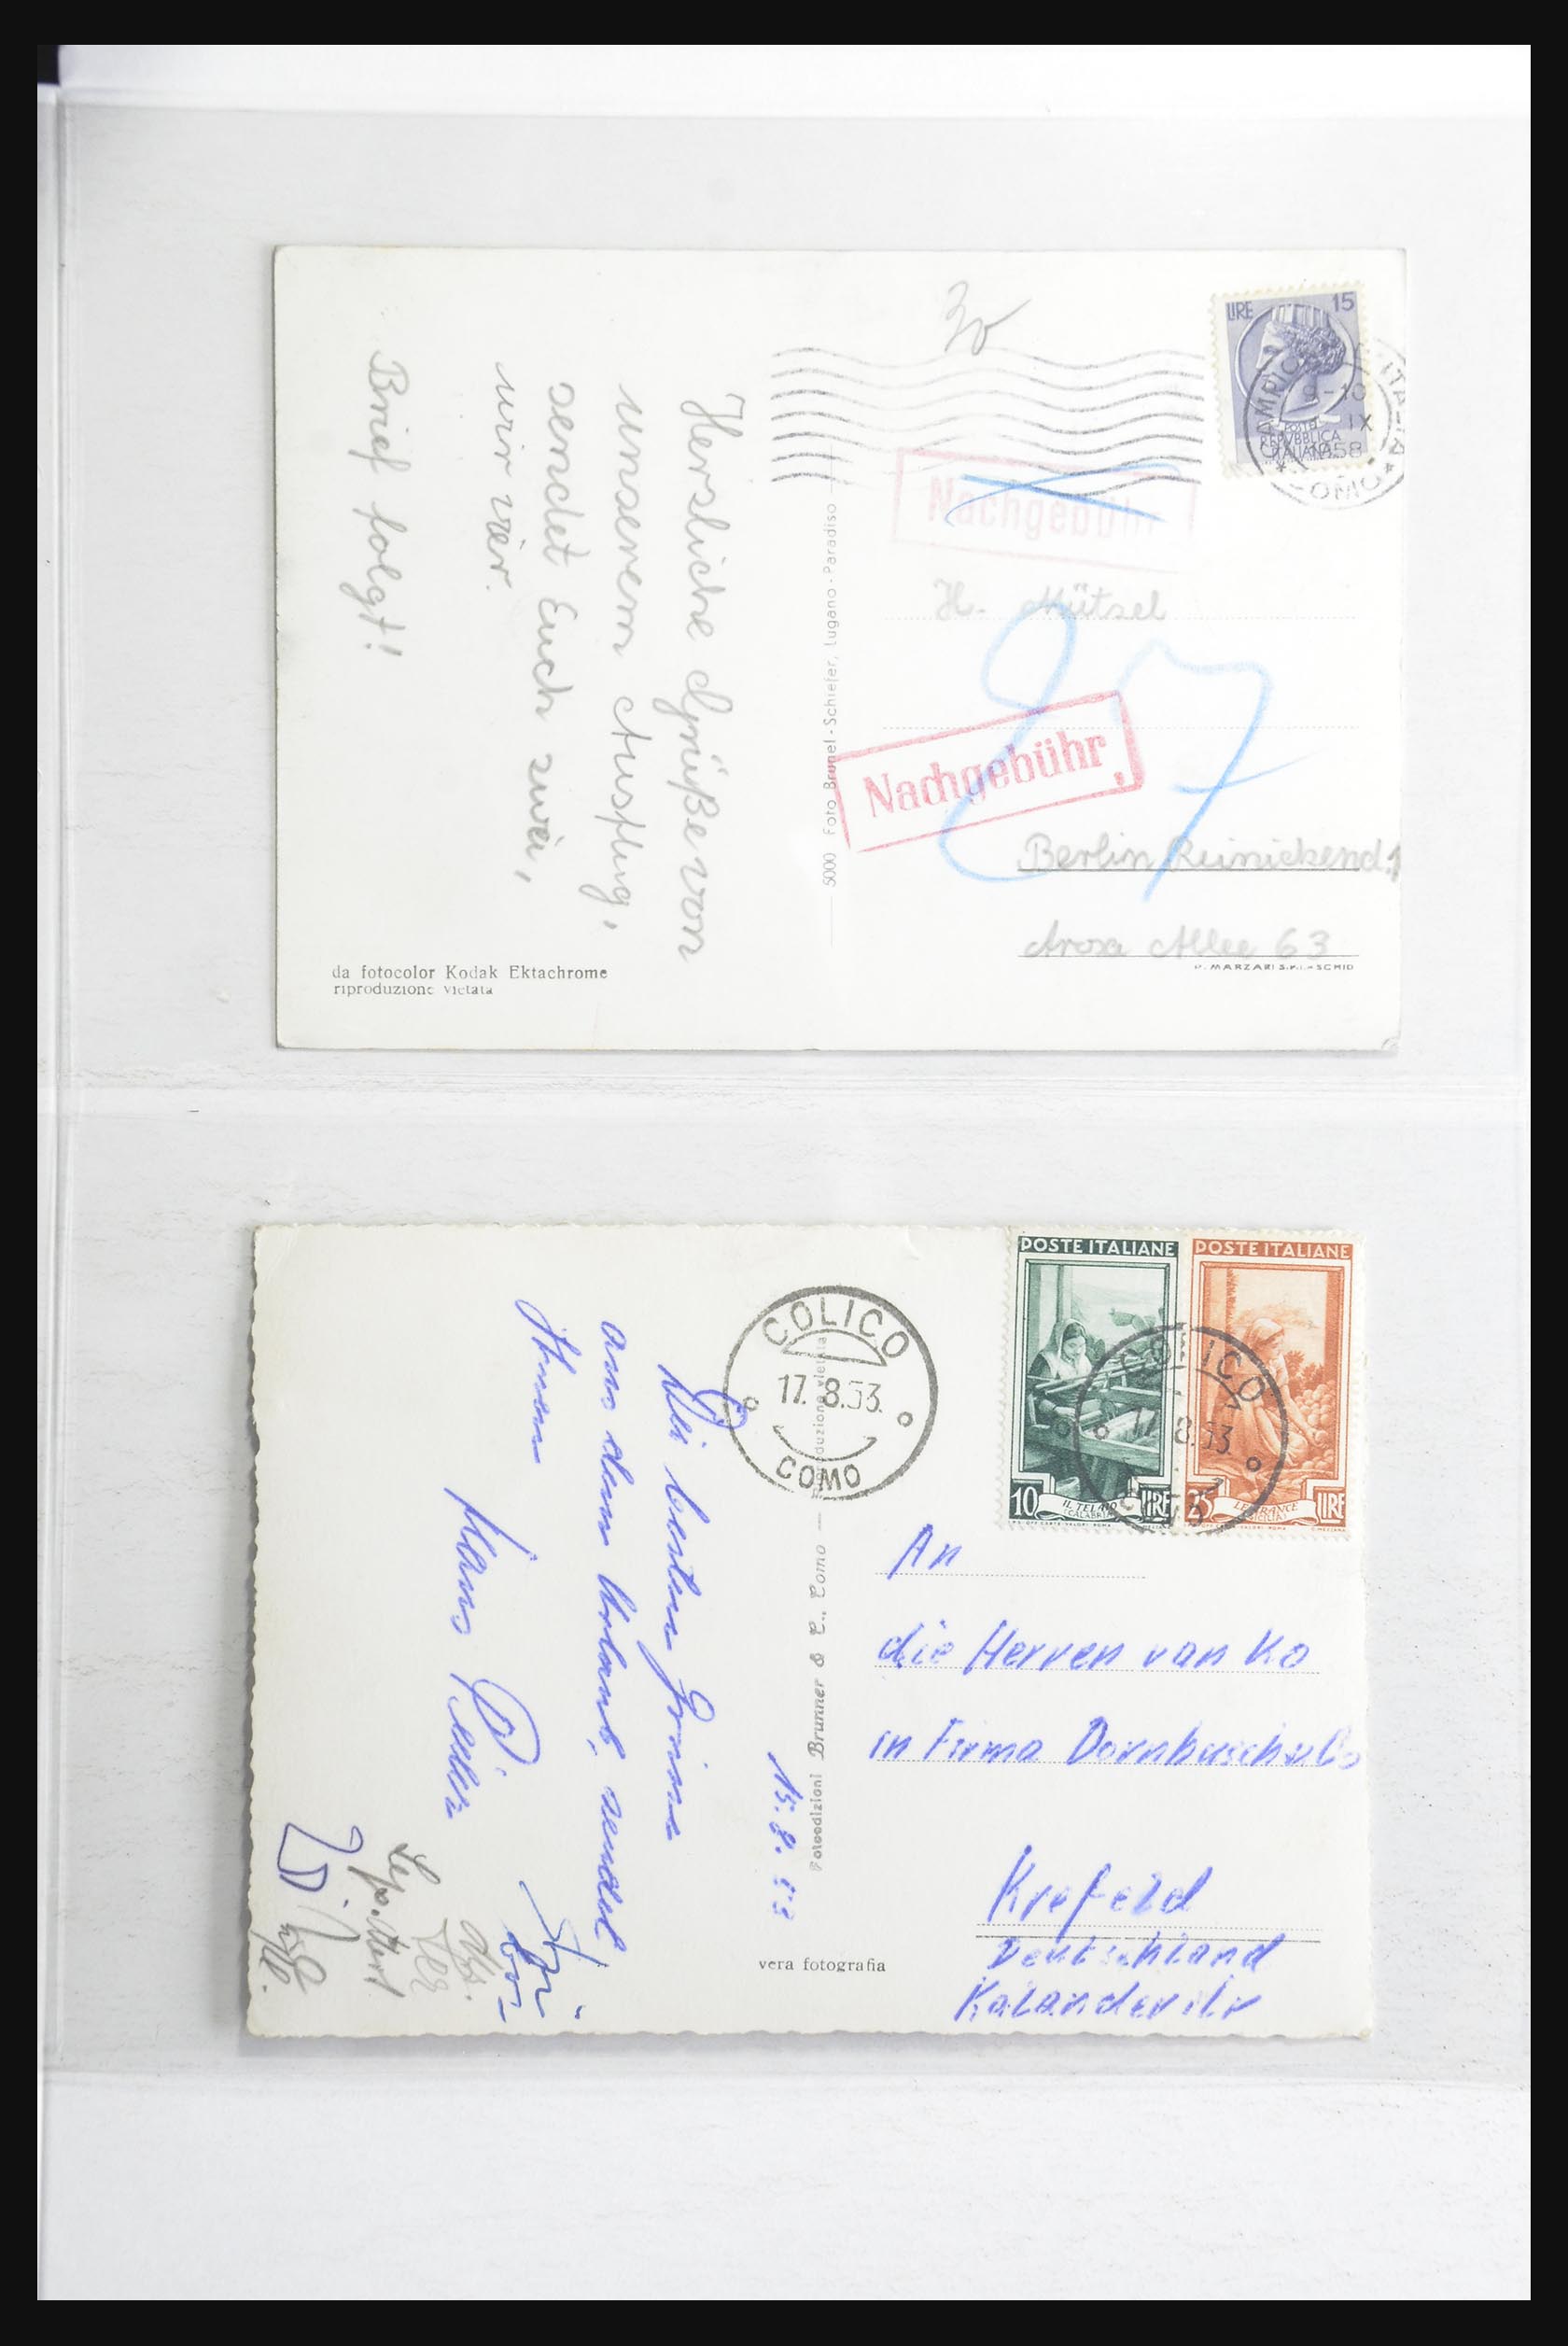 30
LIRE 15
ITALIA
9-10
IX
1958
POSTE
REPVBBLICA
ITALIANA
Nachgebühr
H. Mützel
27
Nachgebühr
Berlin Reinickend. 1
Arosa Allee 63
P. MARZARI S.r.l. - SCHIO
5000 Foto Brunel - Schiefer, Lugano - Paradiso
Herzliche Grüße von
unserem Ausflug,
sendet Euch zwei,
wir vier.
Brief folgt!
da fotocolor Kodak Ektachrome
riproduzione vietata
POSTE ITALIANE
10 IL TELAIO LIRE
(CALABRIA)
POSTE ITALIANE
25 LE ARANCE LIRE
(SICILIA)
COLICO
17.8.53.
COMO
COLICO
17.8.53
An
die Herren van Ko
in Firma Dornbusch & Co
Krefeld
Deutschland
Kalanderstr
Fotoedizioni Brunner & C., Como — Riproduzione vietata
15.8.53
Die besten Grüsse
aus dem Urlaub, sendet
Ihnen
Hans
vera fotografia